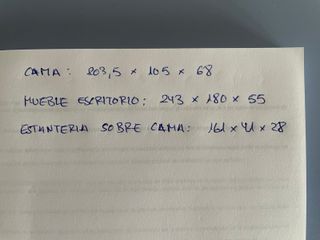 CAMA: 203,5 × 105 × 68
MUEBLE ESCRITORIO: 243 × 180 × 55
ESTANTERIA SOBRE CAMA: 161 × 41 × 28